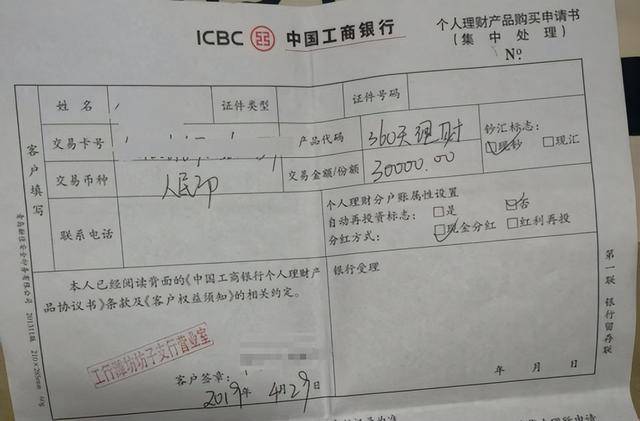 ICBC 中国工商银行
个人理财产品购买申请书
(集中处理)
No:
客户填写
姓名
证件类型
证件号码
交易卡号
产品代码
360天理财
钞汇标志:
现钞 现汇
交易币种
人民币
交易金额/份额
30000.00
联系电话
个人理财分户账属性设置
自动再投资标志: 是 否
分红方式: 现金分红 红利再投
本人已经阅读背面的《中国工商银行个人理财产
品协议书》条款及《客户权益须知》的相关约定。
银行受理
工行潍坊坊子支行营业室
客户签章:
2019年 4月29日
年 月 日
第一联 银行留存联